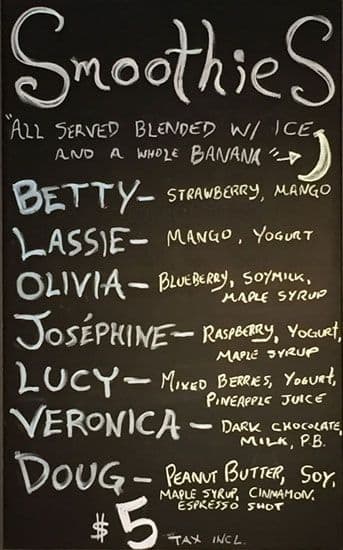 SmoothieS
"ALL SERVED BLENDED W/ ICE
AND A WHOLE BANANA"
BETTY- STRAWBERRY, MANGO
LASSIE- MANGO, YOGURT
OLIVIA- BLUEBERRY, SOYMILK,
MAPLE SYRUP
JOSÉPHINE- RASPBERRY, YOGURT,
MAPLE SYRUP
LUCY- MIXED BERRIES, YOGURT,
PINEAPPLE JUICE
VERONICA- DARK CHOCOLATE,
MILK, P.B.
DOUG- PEANUT BUTTER, SOY,
MAPLE SYRUP, CINNAMON,
ESPRESSO SHOT
$5 TAX INCL.